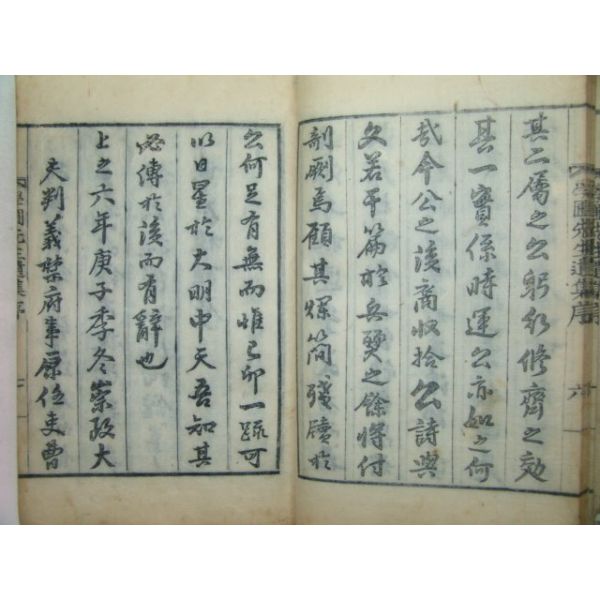 其二屬之公躬行修齊之效
其一實係時運公亦如之何
哉今公之後商收拾公詩與
文若干篇於兵燹之餘將付
剞劂焉顧其煤簡殘牘於
公何足有無而惟己卯一疏可
以日星於大明中天吾知其
必傳於後而有辭也
上之六年庚子季冬崇政大
夫判義禁府事原任吏曹
先生遺集序
六